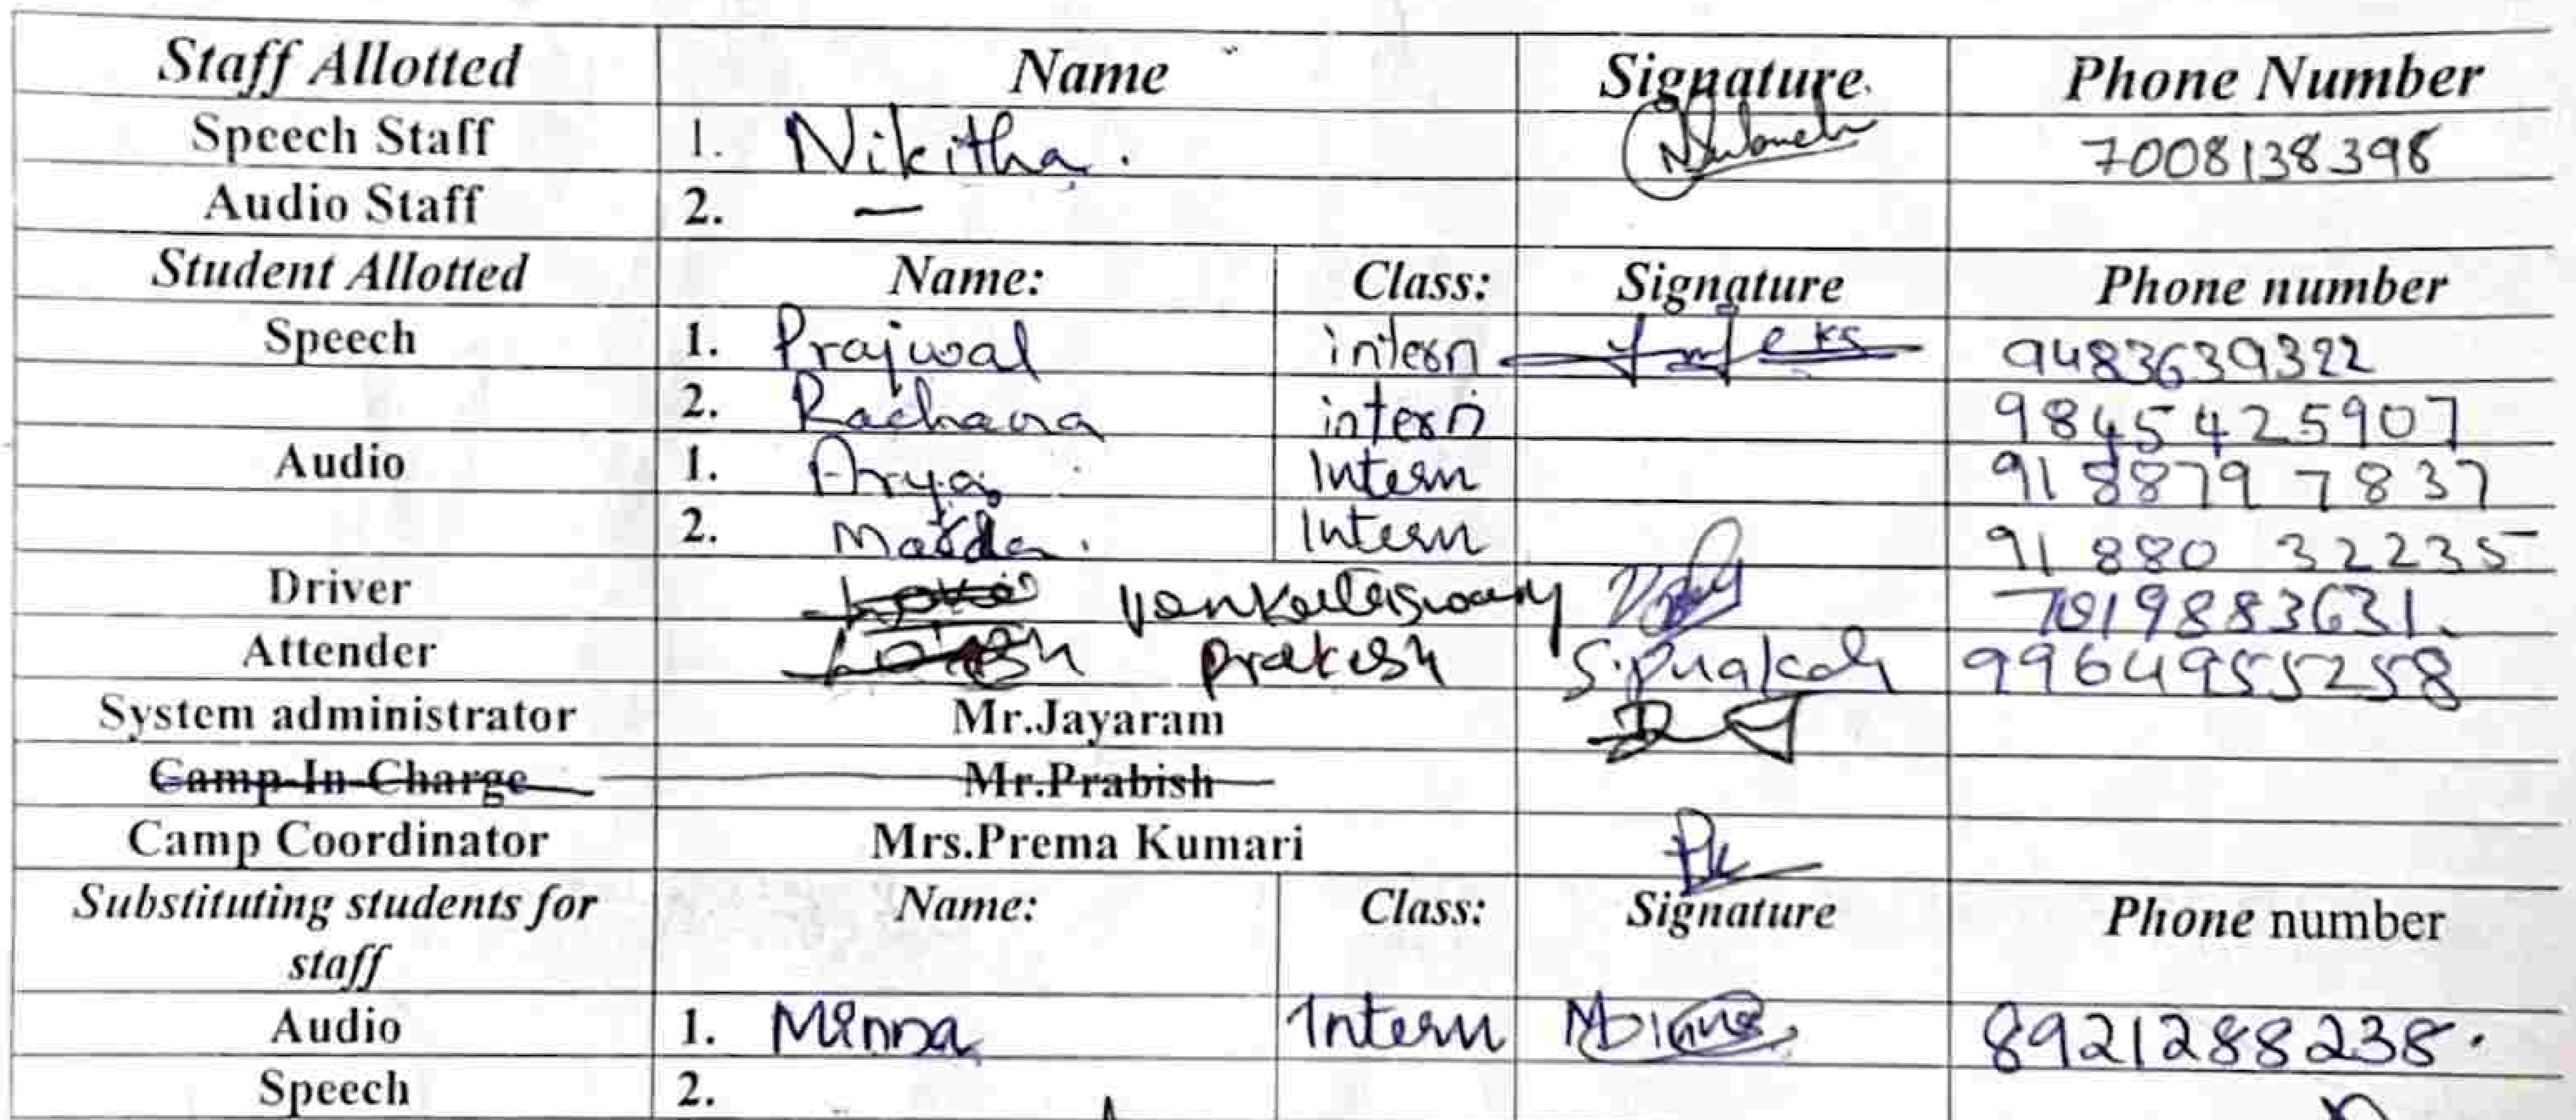 Staff Allotted Name Signature Phone Number
Speech Staff 1. Nikitha. 7008138398
Audio Staff 2. —
Student Allotted Name: Class: Signature Phone number
Speech 1. Prajwal intern 9483639322
2. Rachana intern 9845425907
Audio 1. Arya Intern 9188797837
2. Intern 91 880 32235
Driver Venkataswamy 7019883631.
Attender prakash S.prakash 9964955258
System administrator Mr.Jayaram
Camp-In-Charge Mr.Prabish
Camp Coordinator Mrs.Prema Kumari PK
Substituting students for Name: Class: Signature Phone number
staff
Audio 1. Minna Intern 8921288238.
Speech 2.